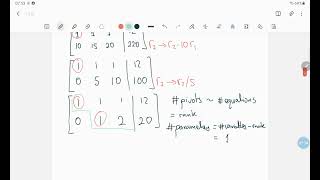 07:53
1 12
10 15 20 220 r₂→r₂-10r₁
1 1 1 12
0 5 10 100 r₂→r₂/5
1 1 1 12 #pivots ~ #equations
= rank
0 1 2 20 #parameters = #variables - rank
= 1